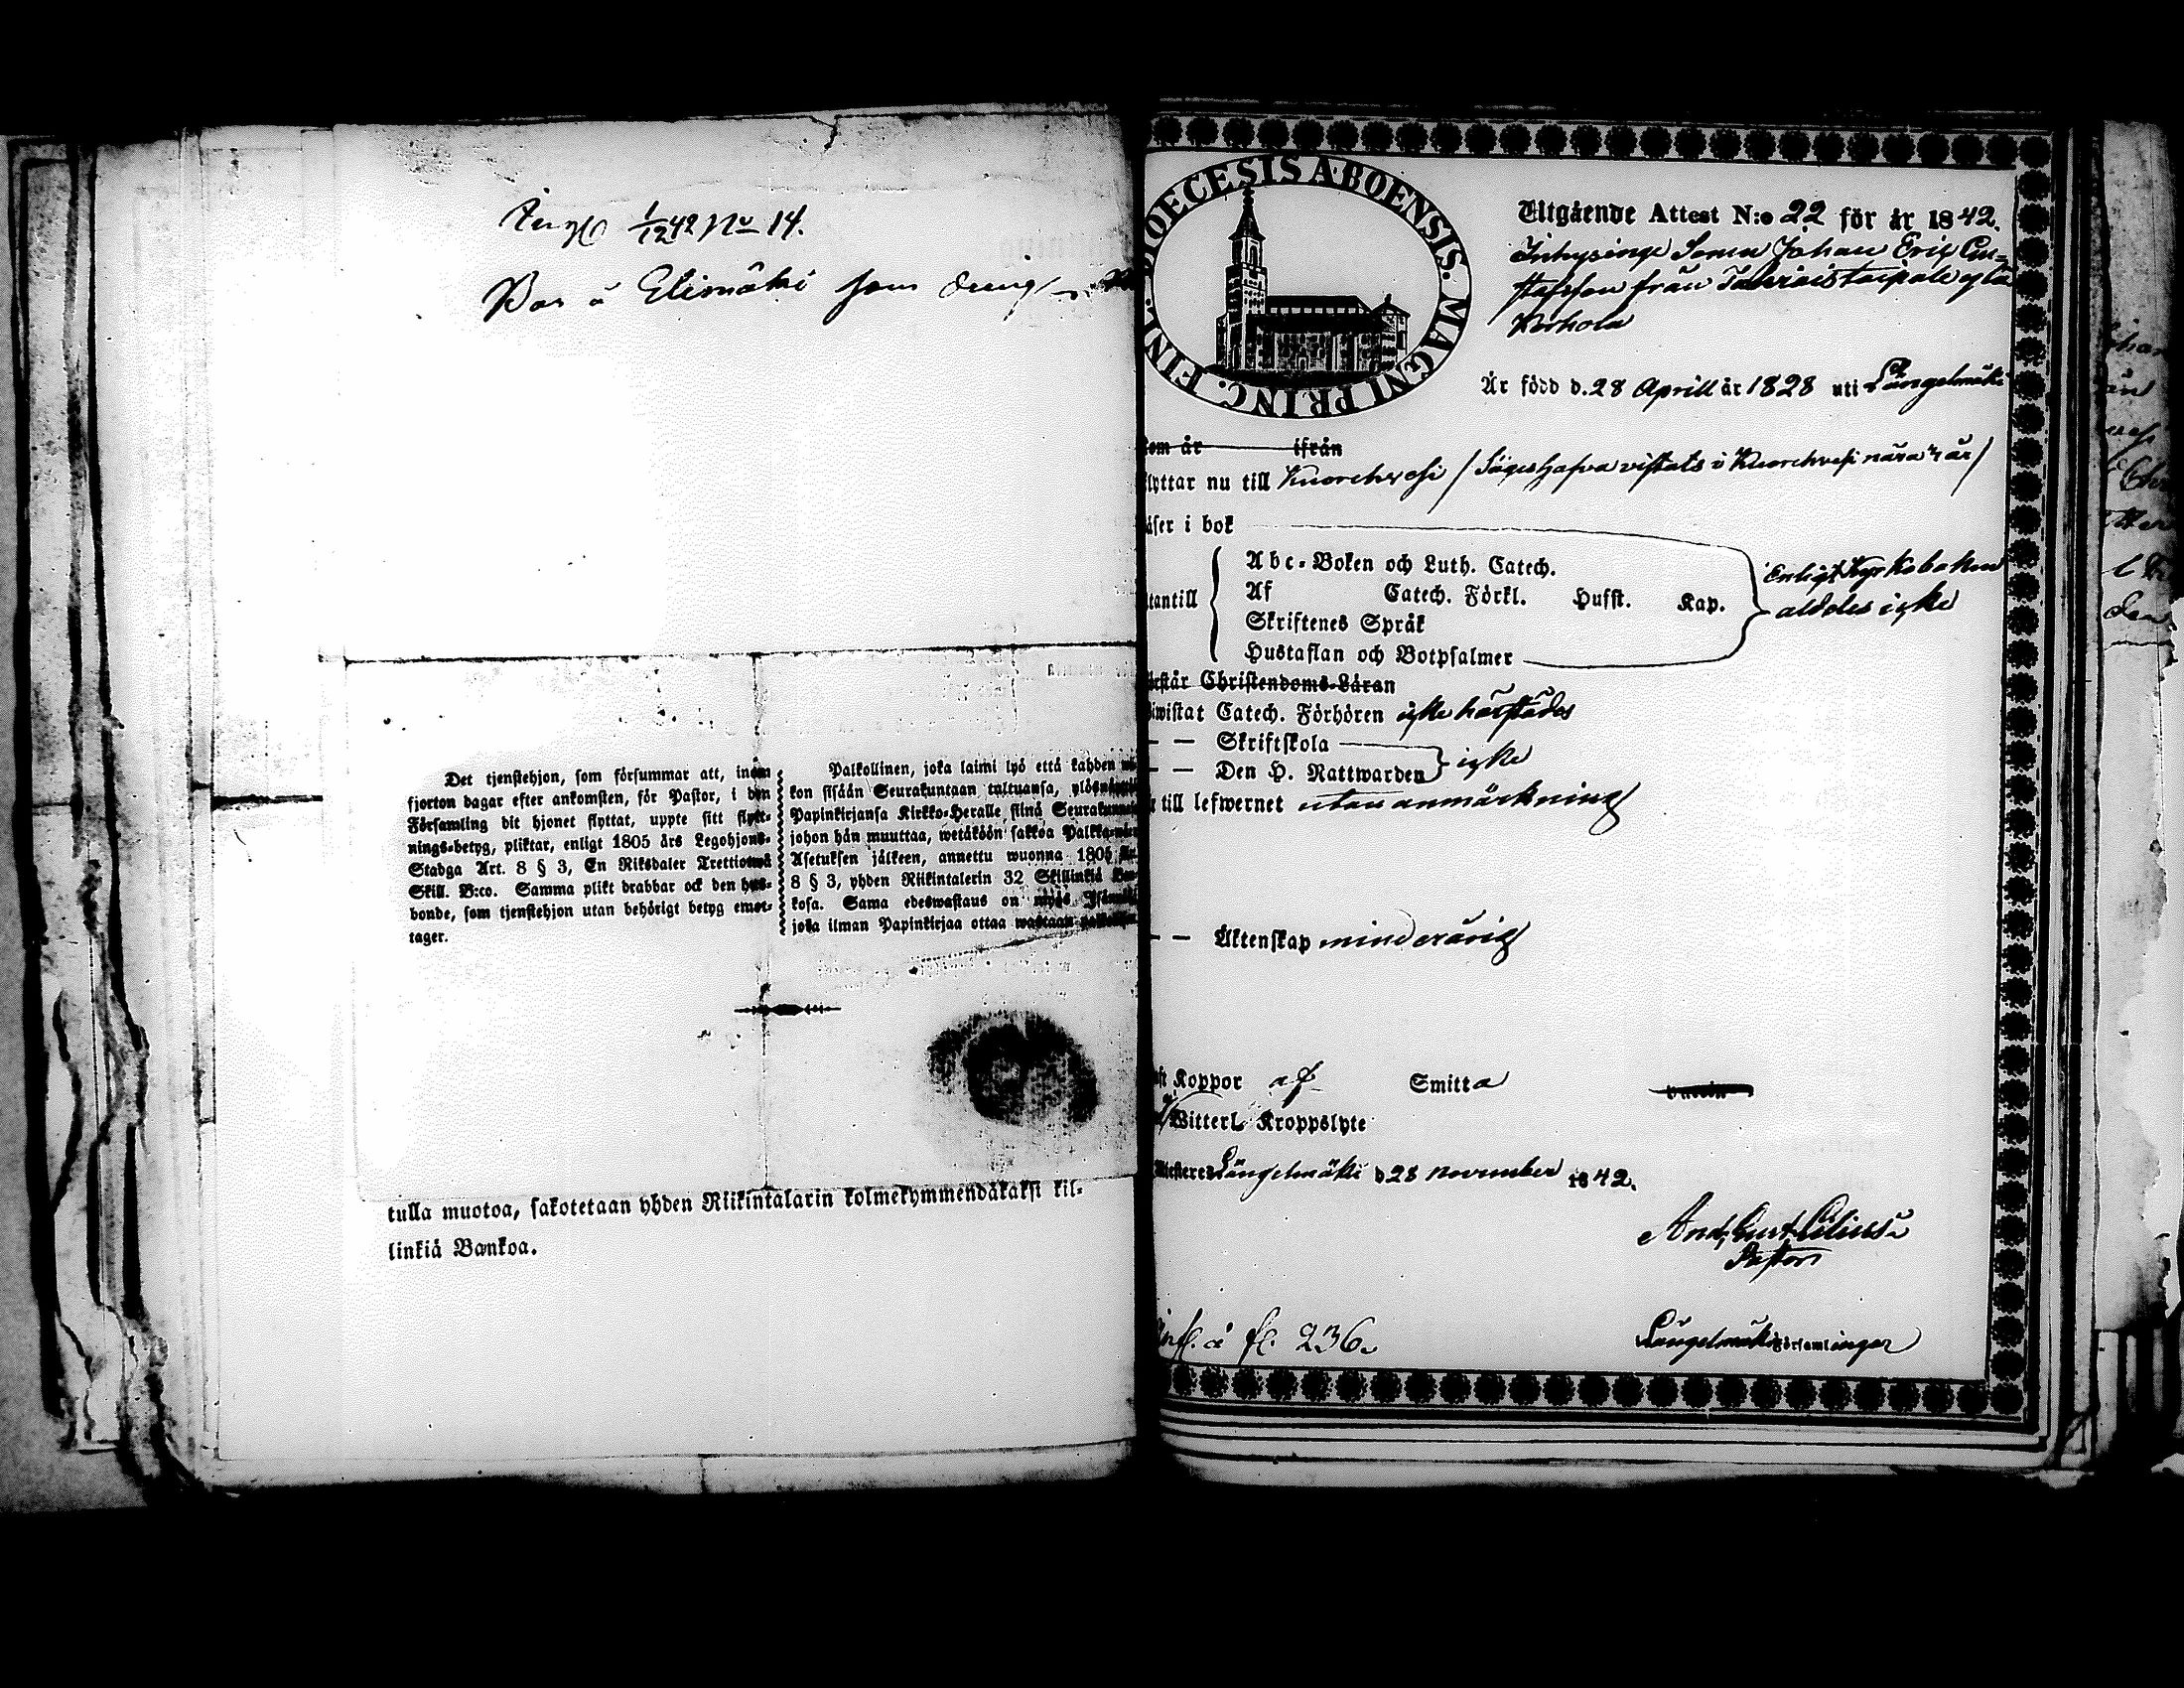 1/12 42 No 14.
Var å Elimäki som dreng
Det tjenstehjon, som försummar att, inom
fjorton dagar efter ankomsten, för Pastor, i den
Församling dit hjonet flyttat, uppte sitt flytt-
nings-betyg, pliktar, enligt 1805 års Legohjons-
Stadga Art. 8 § 3, En Riksdaler Trettiotwå
Skill. B:co. Samma plikt drabbar ock den hus-
bonde, som tjenstehjon utan behörigt betyg emot-
tager.
Palkollinen, joka laimi lyö että kahden
kon sisään Seurakuntaan tultuansa,
Papinkirjansa Kirkko-Heralle siinä
johon hän muuttaa, wetäköön sakkoa
Asetuksen jälkeen, annettu wuonna 1805
8 § 3, yhden Riikintalerin 32 Skillinkiä
kosa. Sama edeswastaus on myös
joka ilman Papinkirjaa ottaa wastaan
tulla muotoa, sakotetaan yhden Riikintalarin kolmekymmendäkaksi kil-
linkiä Bankoa.
DIOECESIS ABOENSIS. MAGNI PRINC. FINL.
Utgående Attest N:o 22 för år 1842.
Inhysinge Sonen Johan Eric Gu-
stafsson från
Är född d. 28 Aprill år 1828 uti Längelmäki
kom år ifrån
flyttar nu till Kuorehvesi / Säges hafva vistats i Kuorehvesi nära år /
läser i bok
utantill
Abc-Boken och Luth. Catech.
Af Catech. Förkl. Husst. Kap.
Skriftenes Språk
Hustaflan och Botpsalmer
Enligt Kyrkoboken
aldeles icke
förstår Christendoms-Läran
biwistat Catech. Förhören icke härstädes
— — Skriftskola
— — Den H. Nattwarden
icke
är till lefwernet utan anmärkning
— — Äktenskap minderårig
haft Koppor af Smitta
Witterl. Kroppslyte
Längelmäki d 28 november 1842.
Pastor
Längelmäki Församlingar
Infl. å fl. 236.